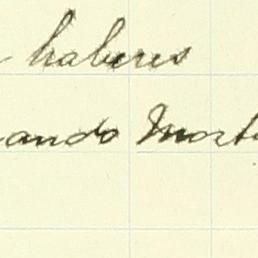 haberes
ando Mort